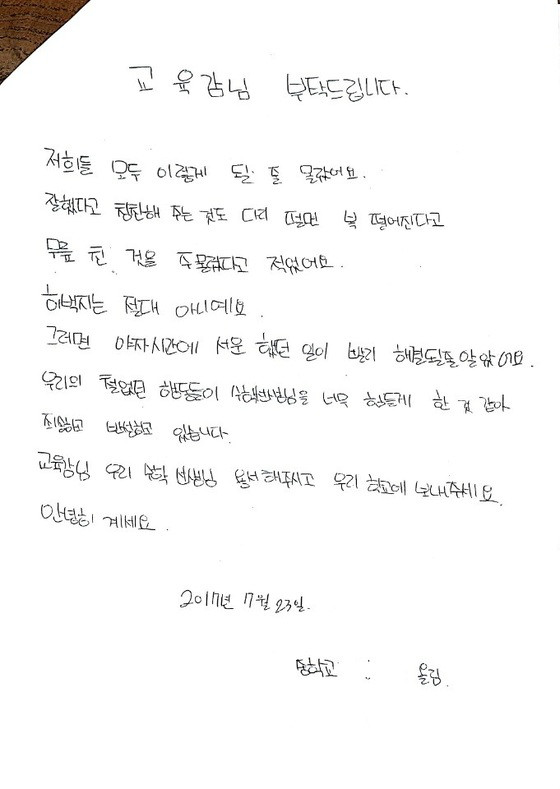 교육감님 부탁드립니다.
저희들 모두 이렇게 될 줄 몰랐어요.
잘했다고 칭찬해 주는 것도 다리 떨면 복 떨어진다고
무릎 친 것을 주물렀다고 적었어요.
허벅지는 절대 아니에요.
그러면 야자시간에 서운 했던 일이 빨리 해결될줄알았어요.
우리의 철없던 행동들이 수학선생님을 너무 힘들게 한 것 같아
죄송하고 반성하고 있습니다.
교육감님 우리 수학 선생님 용서해주시고 우리 학교에 보내주세요.
안녕히 계세요.
2017년 7월 23일.
중학교 : 올림.